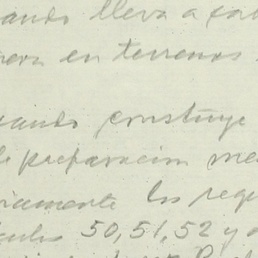 ando lleva a cab
en terrenos
uando construye
preparacion me
riamente los requ
culos 50, 51, 52 y